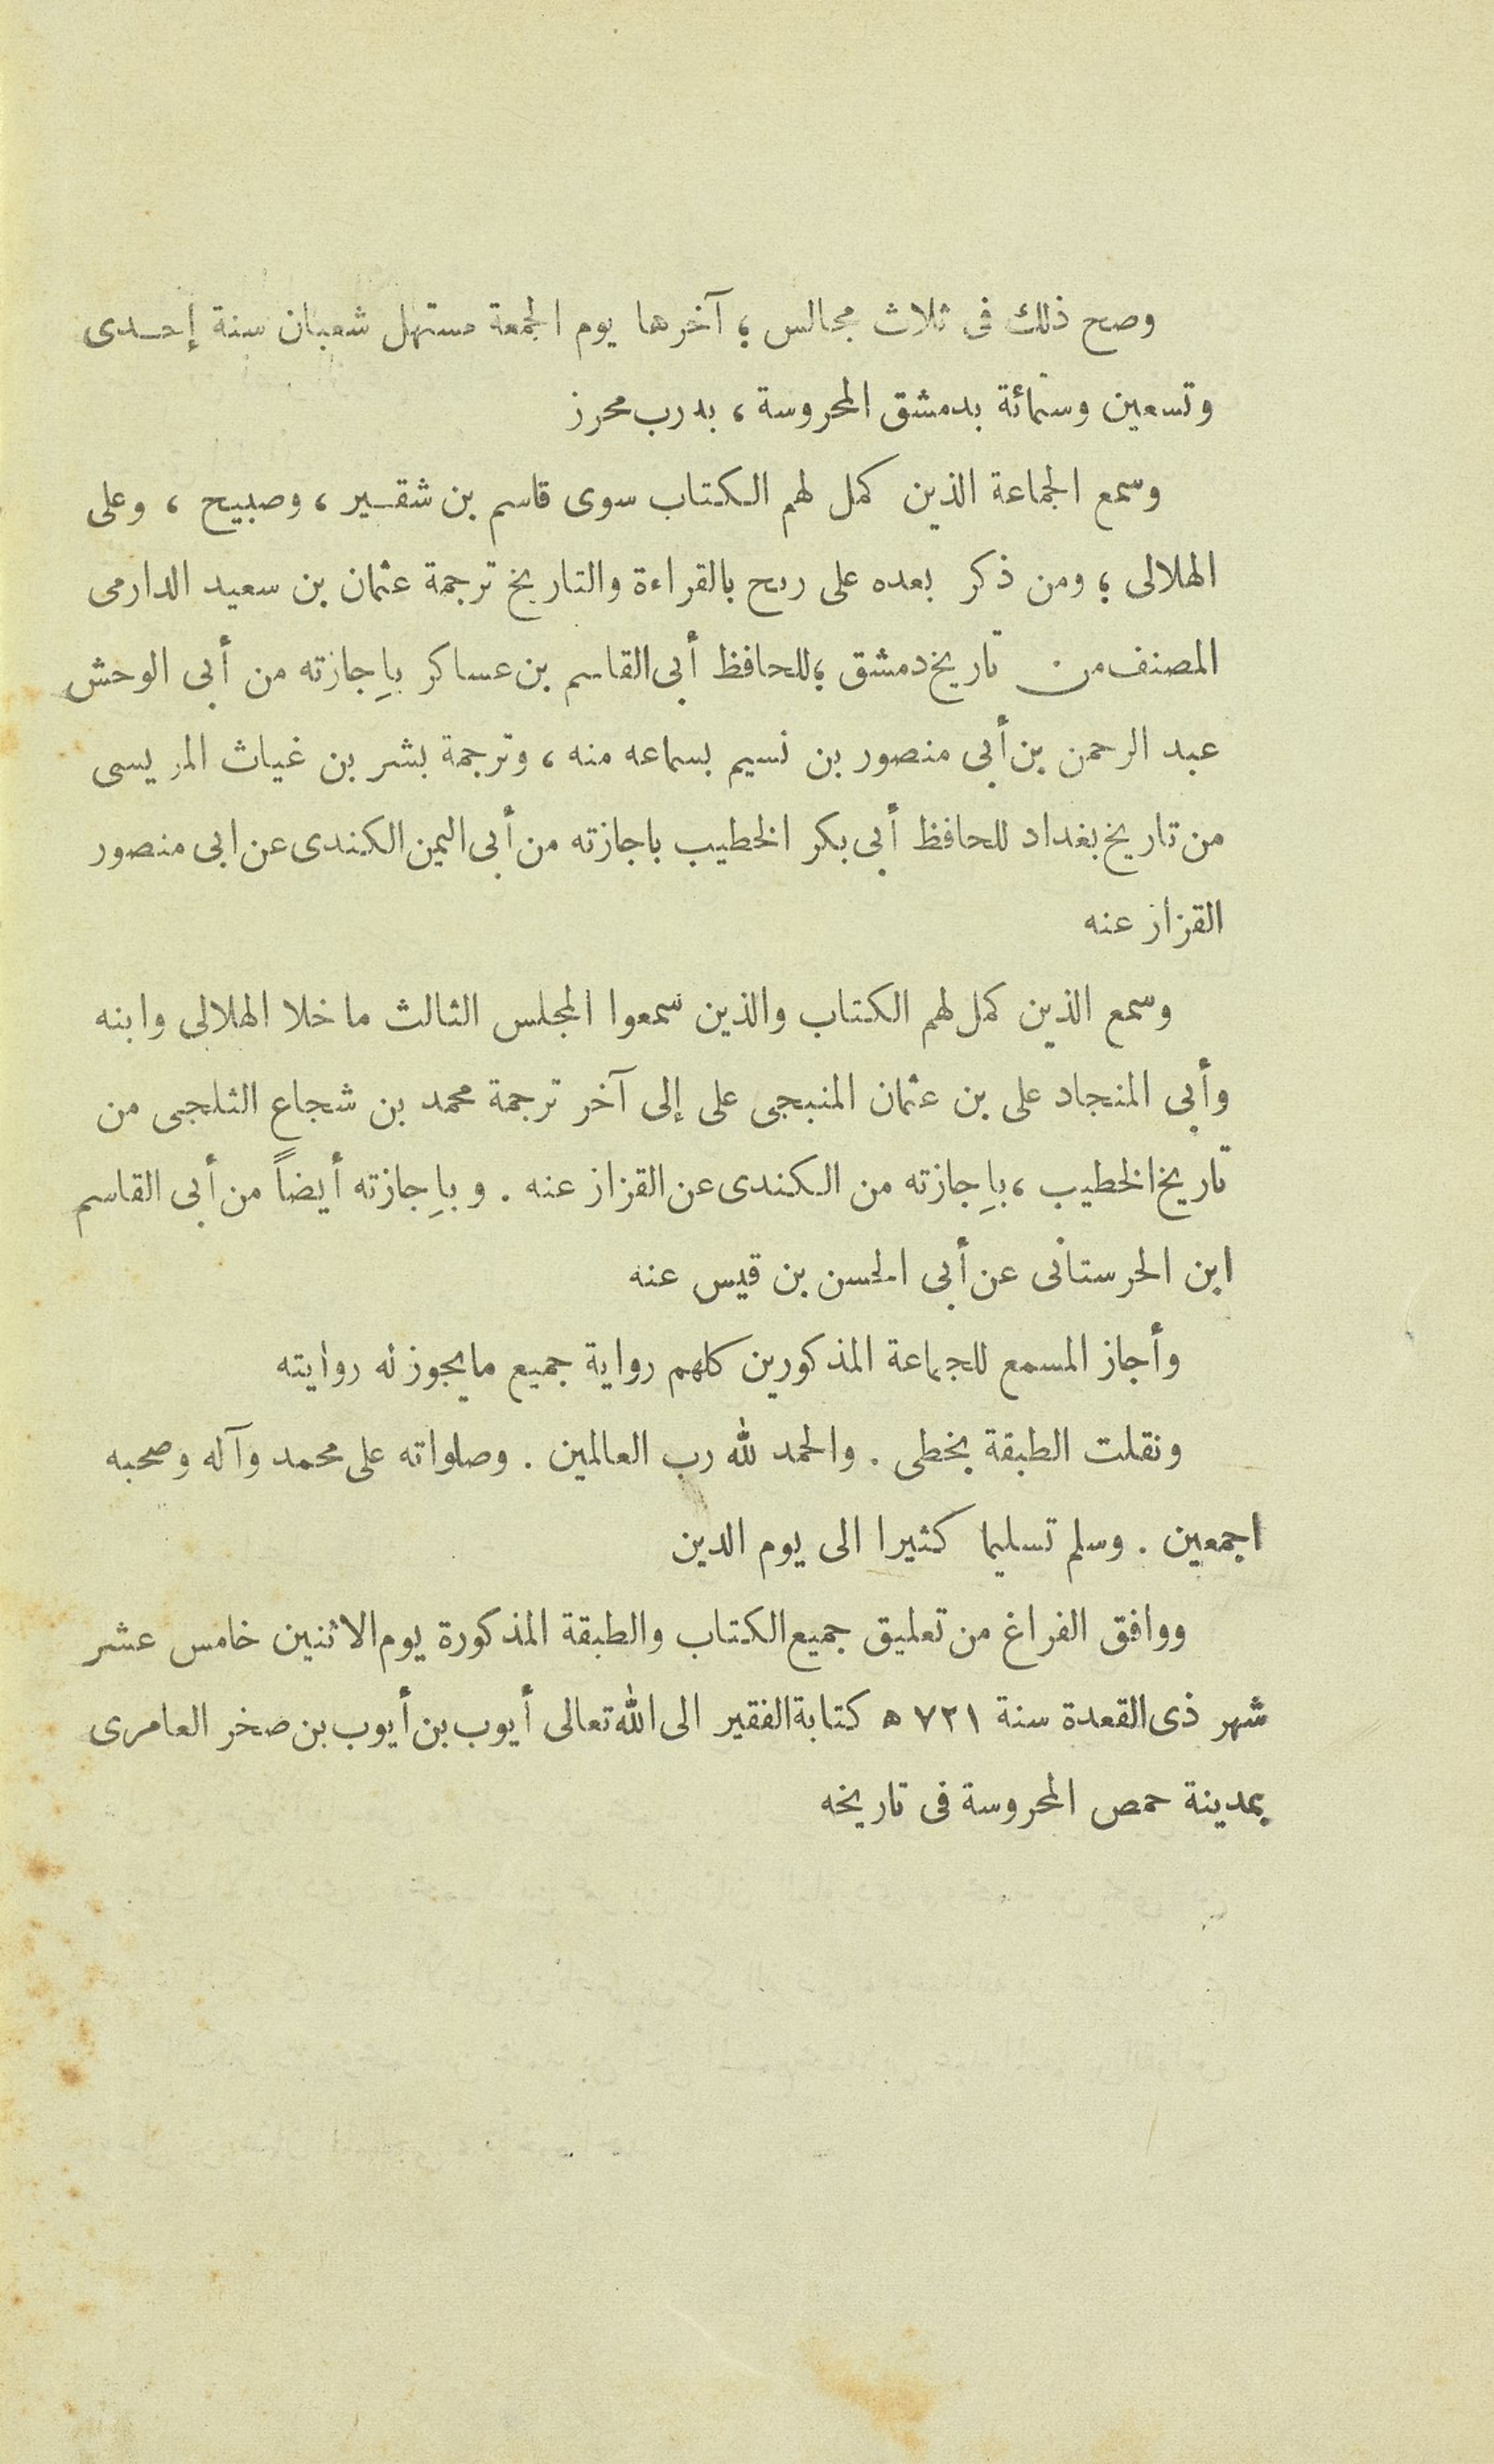 وصح ذلك فى ثلاث مجالس ؛ آخرها يوم الجمعة مستهل شعبان سنة إحدى
وتسعين وستمائة بدمشق المحروسة ، بدرب محرز
وسمع الجماعة الذين كمل لهم الكتاب سوى قاسم بن شقير ، وصبيح ، وعلى
الهلالى ؛ ومن ذكر بعده على ربح بالقراءة والتاريخ ترجمة عثمان بن سعيد الدارمى
المصنف من تاريخ دمشق ؛ للحافظ أبى القاسم بن عساكر بإجازته من أبى الوحش
عبد الرحمن بن أبى منصور بن نسيم بسماعه منه ، وترجمة بشر بن غياث المريسى
من تاريخ بغداد للحافظ أبى بكر الخطيب باجازته من أبى اليمن الكندى عن ابى منصور
القزاز عنه
وسمع الذين كمل لهم الكتاب والذين سمعوا المجلس الثالث ما خلا الهلالى وابنه
وأبى المنجاد على بن عثمان المنبجى على إلى آخر ترجمة محمد بن شجاع الثلجى من
تاريخ الخطيب ، بإجازته من الكندى عن القزاز عنه . وبإجازته أيضاً من أبى القاسم
ابن الحرستانى عن أبى الحسن بن قيس عنه
وأجاز المسمع للجماعة المذكورين كلهم رواية جميع ما يجوز له روايته
ونقلت الطبقة بخطى . والحمد لله رب العالمين . وصلواته على محمد وآله وصحبه
اجمعين . وسلم تسليما كثيرا الى يوم الدين
ووافق الفراغ من تعليق جميع الكتاب والطبقة المذكورة يوم الاثنين خامس عشر
شهر ذى القعدة سنة ٧٢١ ه كتابة الفقير الى الله تعالى أيوب بن أيوب بن صخر العامرى
بمدينة حمص المحروسة فى تاريخه